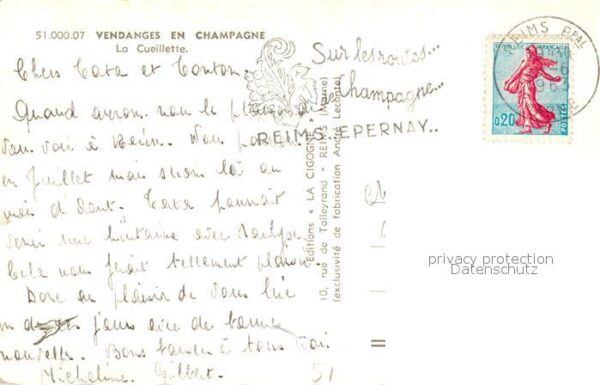 51.000.07 VENDANGES EN CHAMPAGNE
La Cueillette.
Chers Tata et Tonton.
Quand aurons nous le plaisir de
vous voir à Reims. Nous
en Juillet mais serons là au
mois d'Août. Tata pourrait
venir une avec
Cela nous ferait tellement plaisir.
Donc au plaisir de vous lire
un de ces jours avec de bonnes
nouvelles. Bons baisers à tous
Micheline. Gilbert.
51
Editions "LA CIGOGNE"
10, rue de Talleyrand - REIMS (Marne)
(exclusivité de fabrication André Leconte)
Sur les routes...
de champagne...
REIMS.. EPERNAY..
REIMS PPAL
1963
REPUBLIQUE FRANÇAISE
0,20
POSTES
privacy protection
Datenschutz